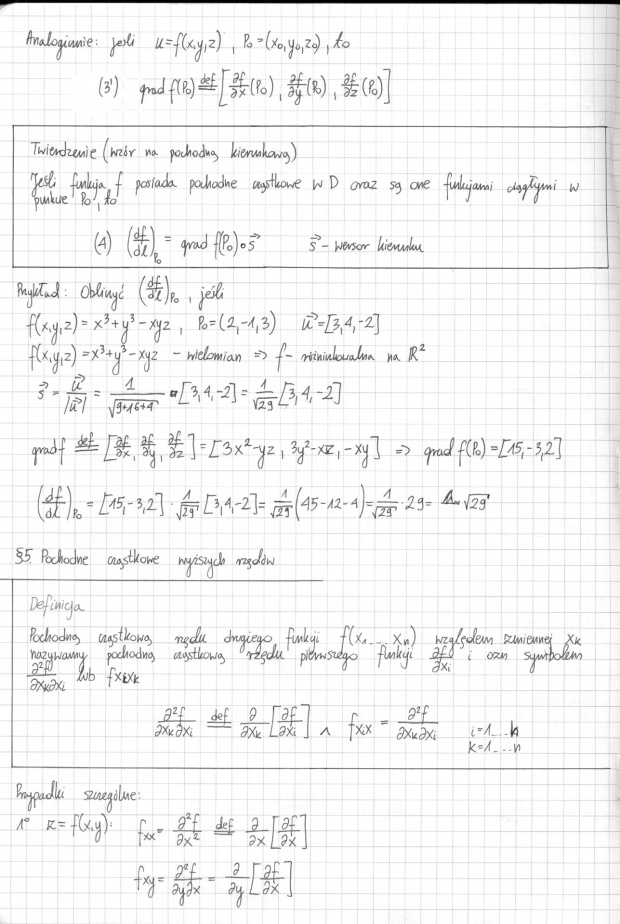 Analogicznie: jeśli u=f(x,y,z), P₀=(x₀,y₀,z₀), to
(3') grad f(P₀) ≝ [∂f/∂x (P₀), ∂f/∂y (P₀), ∂f/∂z (P₀)]
Twierdzenie (wzór na pochodną kierunkową)
Jeśli funkcja f posiada pochodne cząstkowe w D oraz są one funkcjami ciągłymi w
punkcie P₀, to
(4) (df/dl)_P₀ = grad f(P₀)∘s⃗ s⃗ - wersor kierunku
Przykład: Obliczyć (df/dl)_P₀, jeśli
f(x,y,z) = x³+y³-xyz, P₀=(2,-1,3) u⃗=[3,4,-2]
f(x,y,z)=x³+y³-xyz - wielomian => f- różniczkowalna na ℝ²
s⃗ = u⃗/|u⃗| = 1/√(9+16+4) · [3,4,-2] = 1/√29 [3,4,-2]
grad f ≝ [∂f/∂x, ∂f/∂y, ∂f/∂z] = [3x²-yz, 3y²-xz, -xy] => grad f(P₀) = [15,-3,2]
(df/dl)_P₀ = [15,-3,2] · 1/√29 [3,4,-2] = 1/√29 (45-12-4) = 1/√29 · 29 = √29
§5. Pochodne cząstkowe wyższych rzędów
Definicja
Pochodną cząstkową rzędu drugiego funkcji f(x₁...xₙ) względem zmiennej xₖ
nazywamy pochodną cząstkową rzędu pierwszego funkcji ∂f/∂xᵢ i ozn symbolem
∂²f/∂xₖ∂xᵢ lub fxᵢxₖ
∂²f/∂xₖ∂xᵢ ≝ ∂/∂xₖ [∂f/∂xᵢ] ∧ fxᵢx = ∂²f/∂xₖ∂xᵢ i=1...n
k=1...n
Przypadki szczególne:
1° z=f(x,y): fxx = ∂²f/∂x² ≝ ∂/∂x [∂f/∂x]
fxy = ∂²f/∂y∂x = ∂/∂y [∂f/∂x]